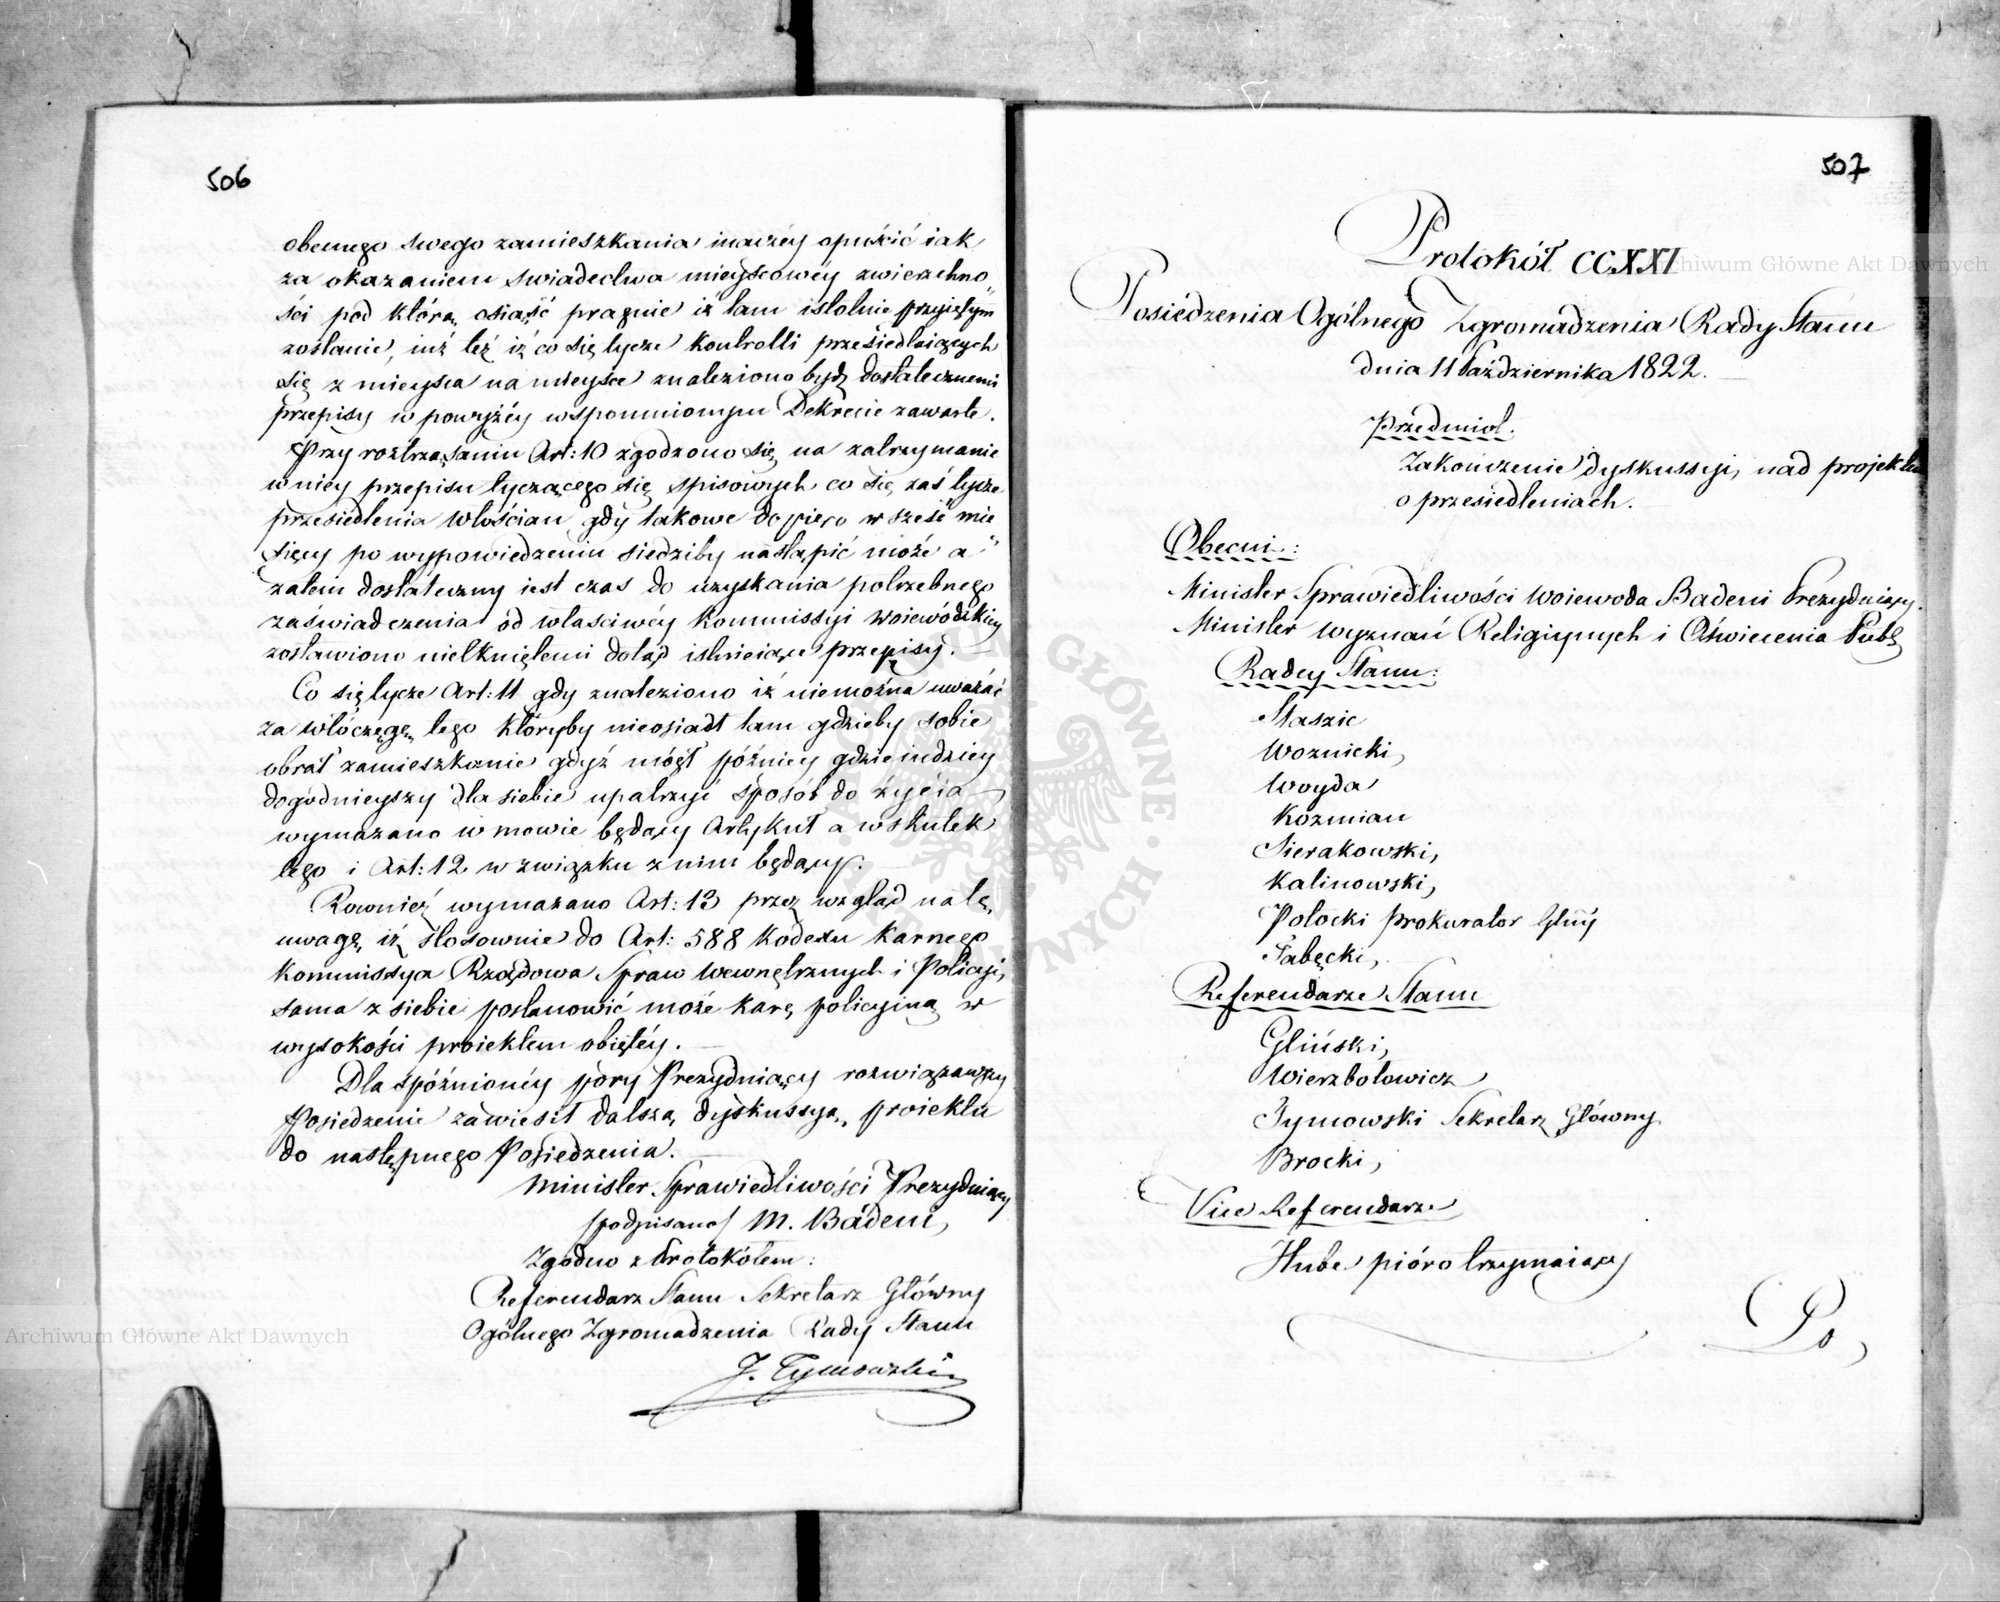 506
obecnego swego zamieszkania inaczéy opuścić iak
za okazaniem swiadectwa mieyscowéy zwierzchno„
ści pod którą osiąść pragnie iż tam istotnie przyiętym
zostanie, iuż też iż co się tycze kontrolli przesiedlaiących
się z mieysca na mieysce znaleziono bydź dostatecznemi
przepisy w powyżéy wspomnionym Dekrecie zawarte.
Przy roztrząsaniu Art: 10 zgodzono się na zatrzymanie
w niéy przepisu tyczącego się spisowych co się zaś tycze
przesiedlenia włościan, gdy takowe dopiero w sześć mie„
sięcy po wypowiedzeniu siedziby nastąpić może a
zatem dostateczny iest czas do uzyskania potrzebnego
zaświadczenia od właściwéy Kommissyi Woiewódzkiey
zostawiono nietkniętemi dotąd istnieiące przepisy.
Co się tycze Art: 11 gdy znaleziono iż niemożna uważać
za włóczęgę tego któryby nieosiadł tam gdzieby sobie
obrał zamieszkanie gdyż mógł późniey gdzieindziey
dogodnieyszy dla siebie upatrzyć sposób do życia
wymazano w mowie będący Artykuł a wskutek
tego i Art: 12 w związku z nim będący.
Rownież wymazano Art: 13 przez wzgląd na tę
uwagę iż stosownie do Art: 588 Kodexu Karnego
Kommissya Rządowa Spraw Wewnętrznych i Policyi,
sama z siebie postanowić może karę policyiną w
wysokości proiektem obiętéy.
Dla spóźnionéy pory Prezyduiący rozwiązawszy
Posiedzenie zawiesił dalszą dyskussyą, proiektu
do następnego Posiedzenia.
Minister Sprawiedliwości Prezyduiący
/podpisano/ M. Badeni,
Zgodno z Protokółem:
Referendarz Stanu Sekretarz Główny
Ogólnego Zgromadzenia Rady Stanu
J. Tymowski
507
Protokół CCXXI
Posiédzenia Ogólnego Zgromadzenia Rady Stanu
dnia 11 Października 1822.
Przedmiot.
Zakończenie dyskussyi, nad projektem
o przesiedleniach.
Obecni:
Minister Sprawiedliwości Woiewoda Badeni Prezyduiący.
Minister Wyznań Religiynych i Oświecenia Publ
Radcy Stanu:
Staszic
Woznicki,
Woyda
Kozmian
Sierakowski,
Kalinowski,
Potocki Prokurator Glny
Łabęcki,
Referendarze Stanu
Gliński,
Wierzbołowicz
Tymowski Sekretarz Główny
Brocki,
Vice Referendarze
Hube pióro trzymaiący
Po,
Archiwum Główne Akt Dawnych
Archiwum Główne Akt Dawnych